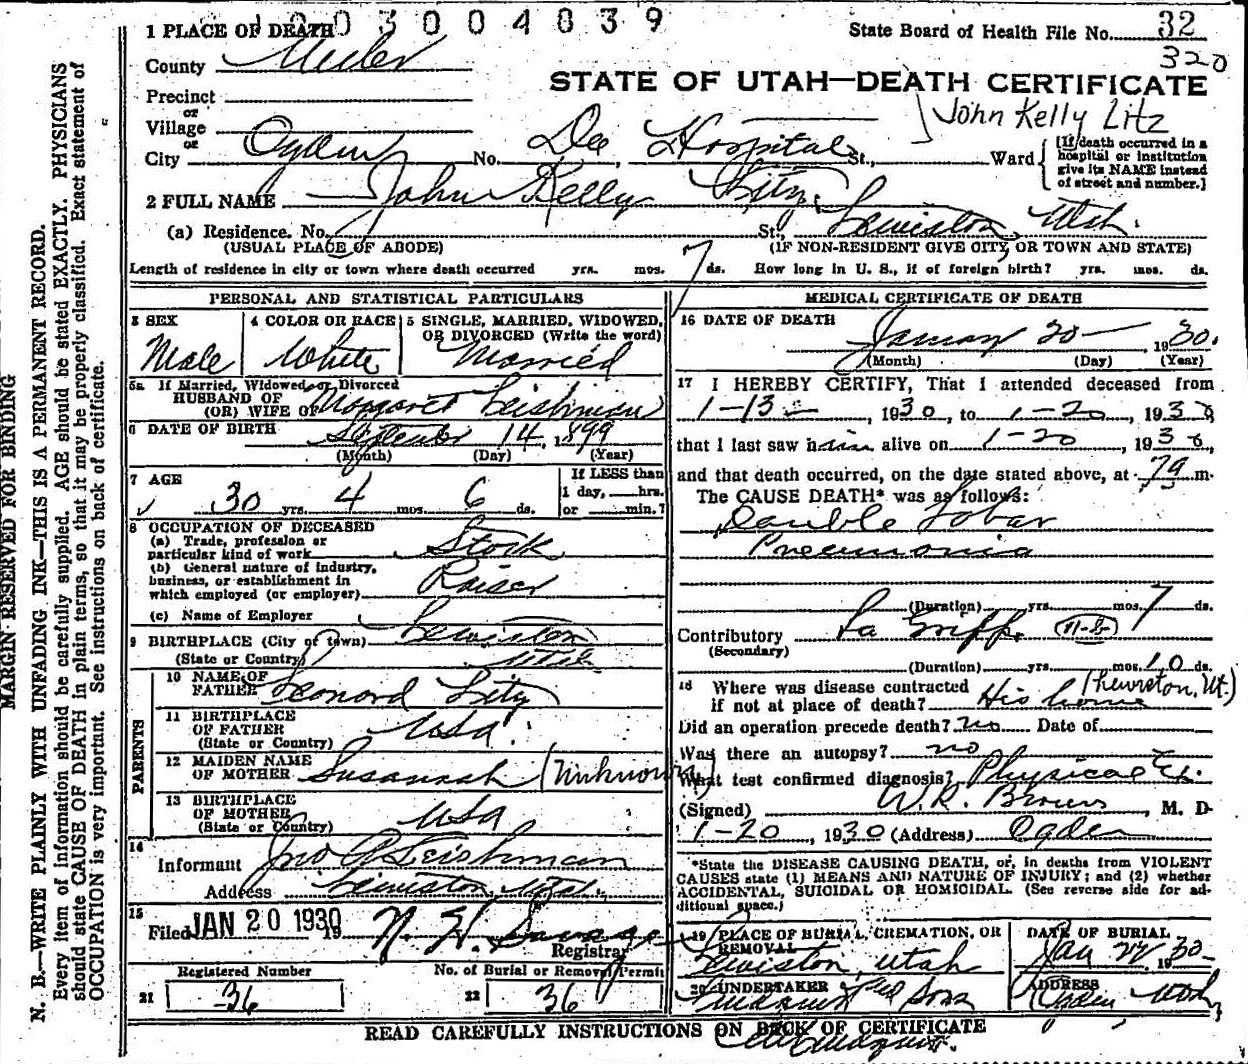 1 PLACE OF DEATH 3004039
State Board of Health File No. 32
320
County Weber
STATE OF UTAH—DEATH CERTIFICATE
Precinct
or
Village
John Kelly Litz
or
City Ogden No. Dee Hospital St., Ward
[If death occurred in a
hospital or institution
give its NAME instead
of street and number.]
2 FULL NAME John Kelly Litz
(a) Residence. No. St. Lewiston, Utah.
(USUAL PLACE OF ABODE) (IF NON-RESIDENT GIVE CITY, OR TOWN AND STATE)
Length of residence in city or town where death occurred yrs. mos. 7 ds. How long in U. S., if of foreign birth? yrs. mos. ds.
PERSONAL AND STATISTICAL PARTICULARS
3 SEX
Male
4 COLOR OR RACE
White
5 SINGLE, MARRIED, WIDOWED,
OR DIVORCED (Write the word)
Married
5a If Married, Widowed, or Divorced
HUSBAND OF
(OR) WIFE OF Margaret Leishman
6 DATE OF BIRTH September 14, 1899
(Month) (Day) (Year)
7 AGE
30 yrs. 4 mos. 6 ds.
If LESS than
1 day, hrs.
or min.?
8 OCCUPATION OF DECEASED
(a) Trade, profession or
particular kind of work Stock
(b) General nature of industry,
business, or establishment in
which employed (or employer) Raiser
(c) Name of Employer
9 BIRTHPLACE (City or town) Lewiston
(State or Country) Utah
PARENTS
10 NAME OF
FATHER Leonard Litz
11 BIRTHPLACE
OF FATHER
(State or Country) USA.
12 MAIDEN NAME
OF MOTHER Susannah (Unknown)
13 BIRTHPLACE
OF MOTHER
(State or Country) USA
14
Informant Jno A Leishman
Address Lewiston, Utah.
15
Filed JAN 20 1930 19
Registrar
Registered Number
21 36
No. of Burial or Removal Permit
22 36
MEDICAL CERTIFICATE OF DEATH
16 DATE OF DEATH
January 20 1930.
(Month) (Day) (Year)
17 I HEREBY CERTIFY, That I attended deceased from
1-13- , 1930, to 1-20 , 1930
that I last saw him alive on 1-20 , 1930,
and that death occurred, on the date stated above, at 7a m.
The CAUSE DEATH* was as follows:
Double Lobar
Pneumonia
(Duration) yrs. mos. 7 ds.
Contributory La Grippe (11-b)
(Secondary)
(Duration) yrs. mos. 10 ds.
18 Where was disease contracted
if not at place of death? His home (Lewiston, Ut.)
Did an operation precede death? no Date of
Was there an autopsy? no
What test confirmed diagnosis? Physical Ex.
(Signed) W.R. Brown, M. D
1-20 , 1930 (Address) Ogden
*State the DISEASE CAUSING DEATH, or, in deaths from VIOLENT
CAUSES state (1) MEANS AND NATURE OF INJURY; and (2) whether
ACCIDENTAL, SUICIDAL OR HOMICIDAL. (See reverse side for ad-
ditional space.)
19 PLACE OF BURIAL, CREMATION, OR
REMOVAL
Lewiston, Utah
DATE OF BURIAL
Jan 22 1930
20 UNDERTAKER
Lindquist And Sons
ADDRESS
Ogden Utah
READ CAREFULLY INSTRUCTIONS ON BACK OF CERTIFICATE
MARGIN RESERVED FOR BINDING
N. B.—WRITE PLAINLY WITH UNFADING INK—THIS IS A PERMANENT RECORD.
Every item of information should be carefully supplied. AGE should be stated EXACTLY. PHYSICIANS
should state CAUSE OF DEATH in plain terms, so that it may be properly classified. Exact statement of
OCCUPATION is very important. See instructions on back of certificate.